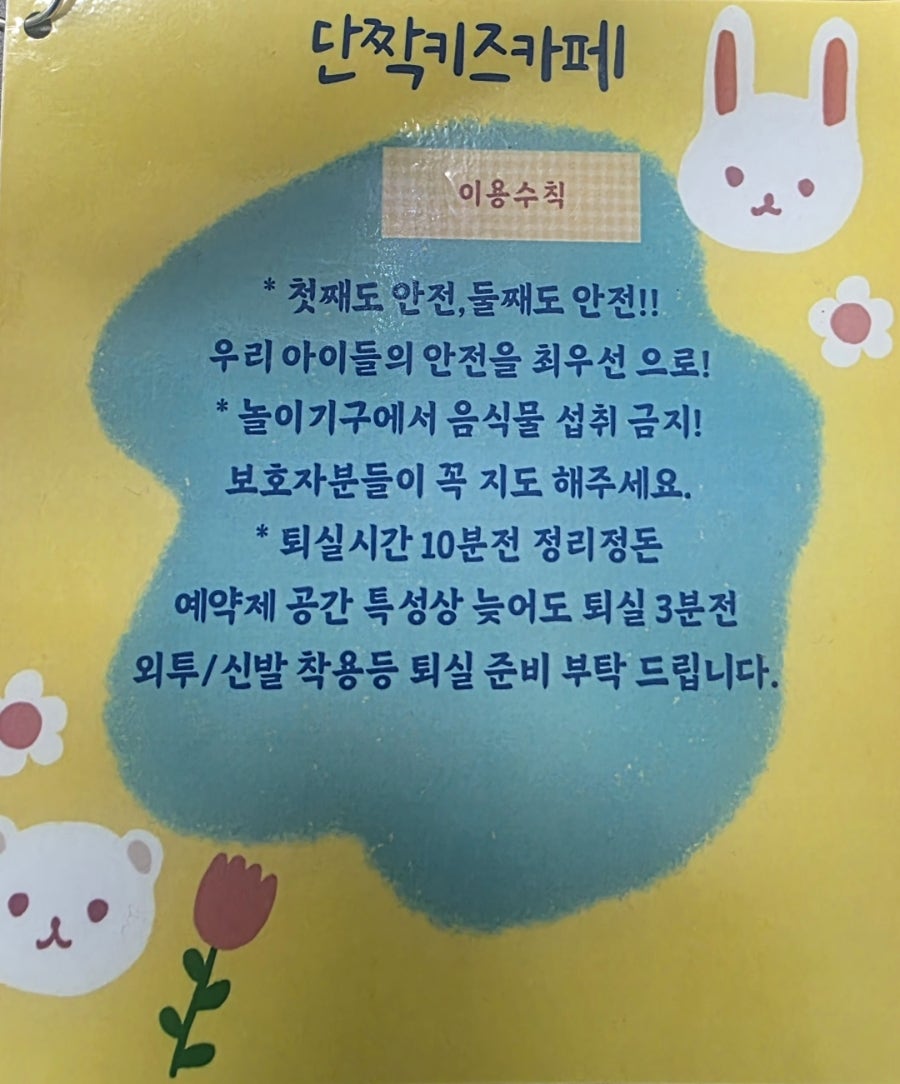 단짝키즈카페
이용수칙
* 첫째도 안전,둘째도 안전!!
우리 아이들의 안전을 최우선 으로!
* 놀이기구에서 음식물 섭취 금지!
보호자분들이 꼭 지도 해주세요.
* 퇴실시간 10분전 정리정돈
예약제 공간 특성상 늦어도 퇴실 3분전
외투/신발 착용등 퇴실 준비 부탁 드립니다.